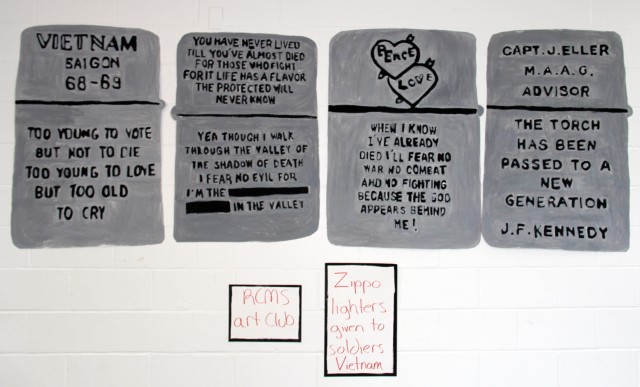 VIETNAM
SAIGON
68-69
TOO YOUNG TO VOTE
BUT NOT TO DIE
TOO YOUNG TO LOVE
BUT TOO OLD
TO CRY
YOU HAVE NEVER LIVED
TILL YOU'VE ALMOST DIED
FOR THOSE WHO FIGHT
FOR IT LIFE HAS A FLAVOR
THE PROTECTED WILL
NEVER KNOW
YEA THOUGH I WALK
THROUGH THE VALLEY OF
THE SHADOW OF DEATH
I FEAR NO EVIL FOR
I'M THE
IN THE VALLEY
PEACE
LOVE
WHEN I KNOW
I'VE ALREADY
DIED I'LL FEAR NO
WAR NO COMBAT
AND NO FIGHTING
BECAUSE THE GOD
APPEARS BEHIND
ME!
CAPT. J. ELLER
M.A.A.G.
ADVISOR
THE TORCH
HAS BEEN
PASSED TO A
NEW
GENERATION
J.F. KENNEDY
RCMS
art club
Zippo
lighters
given to
soldiers
Vietnam